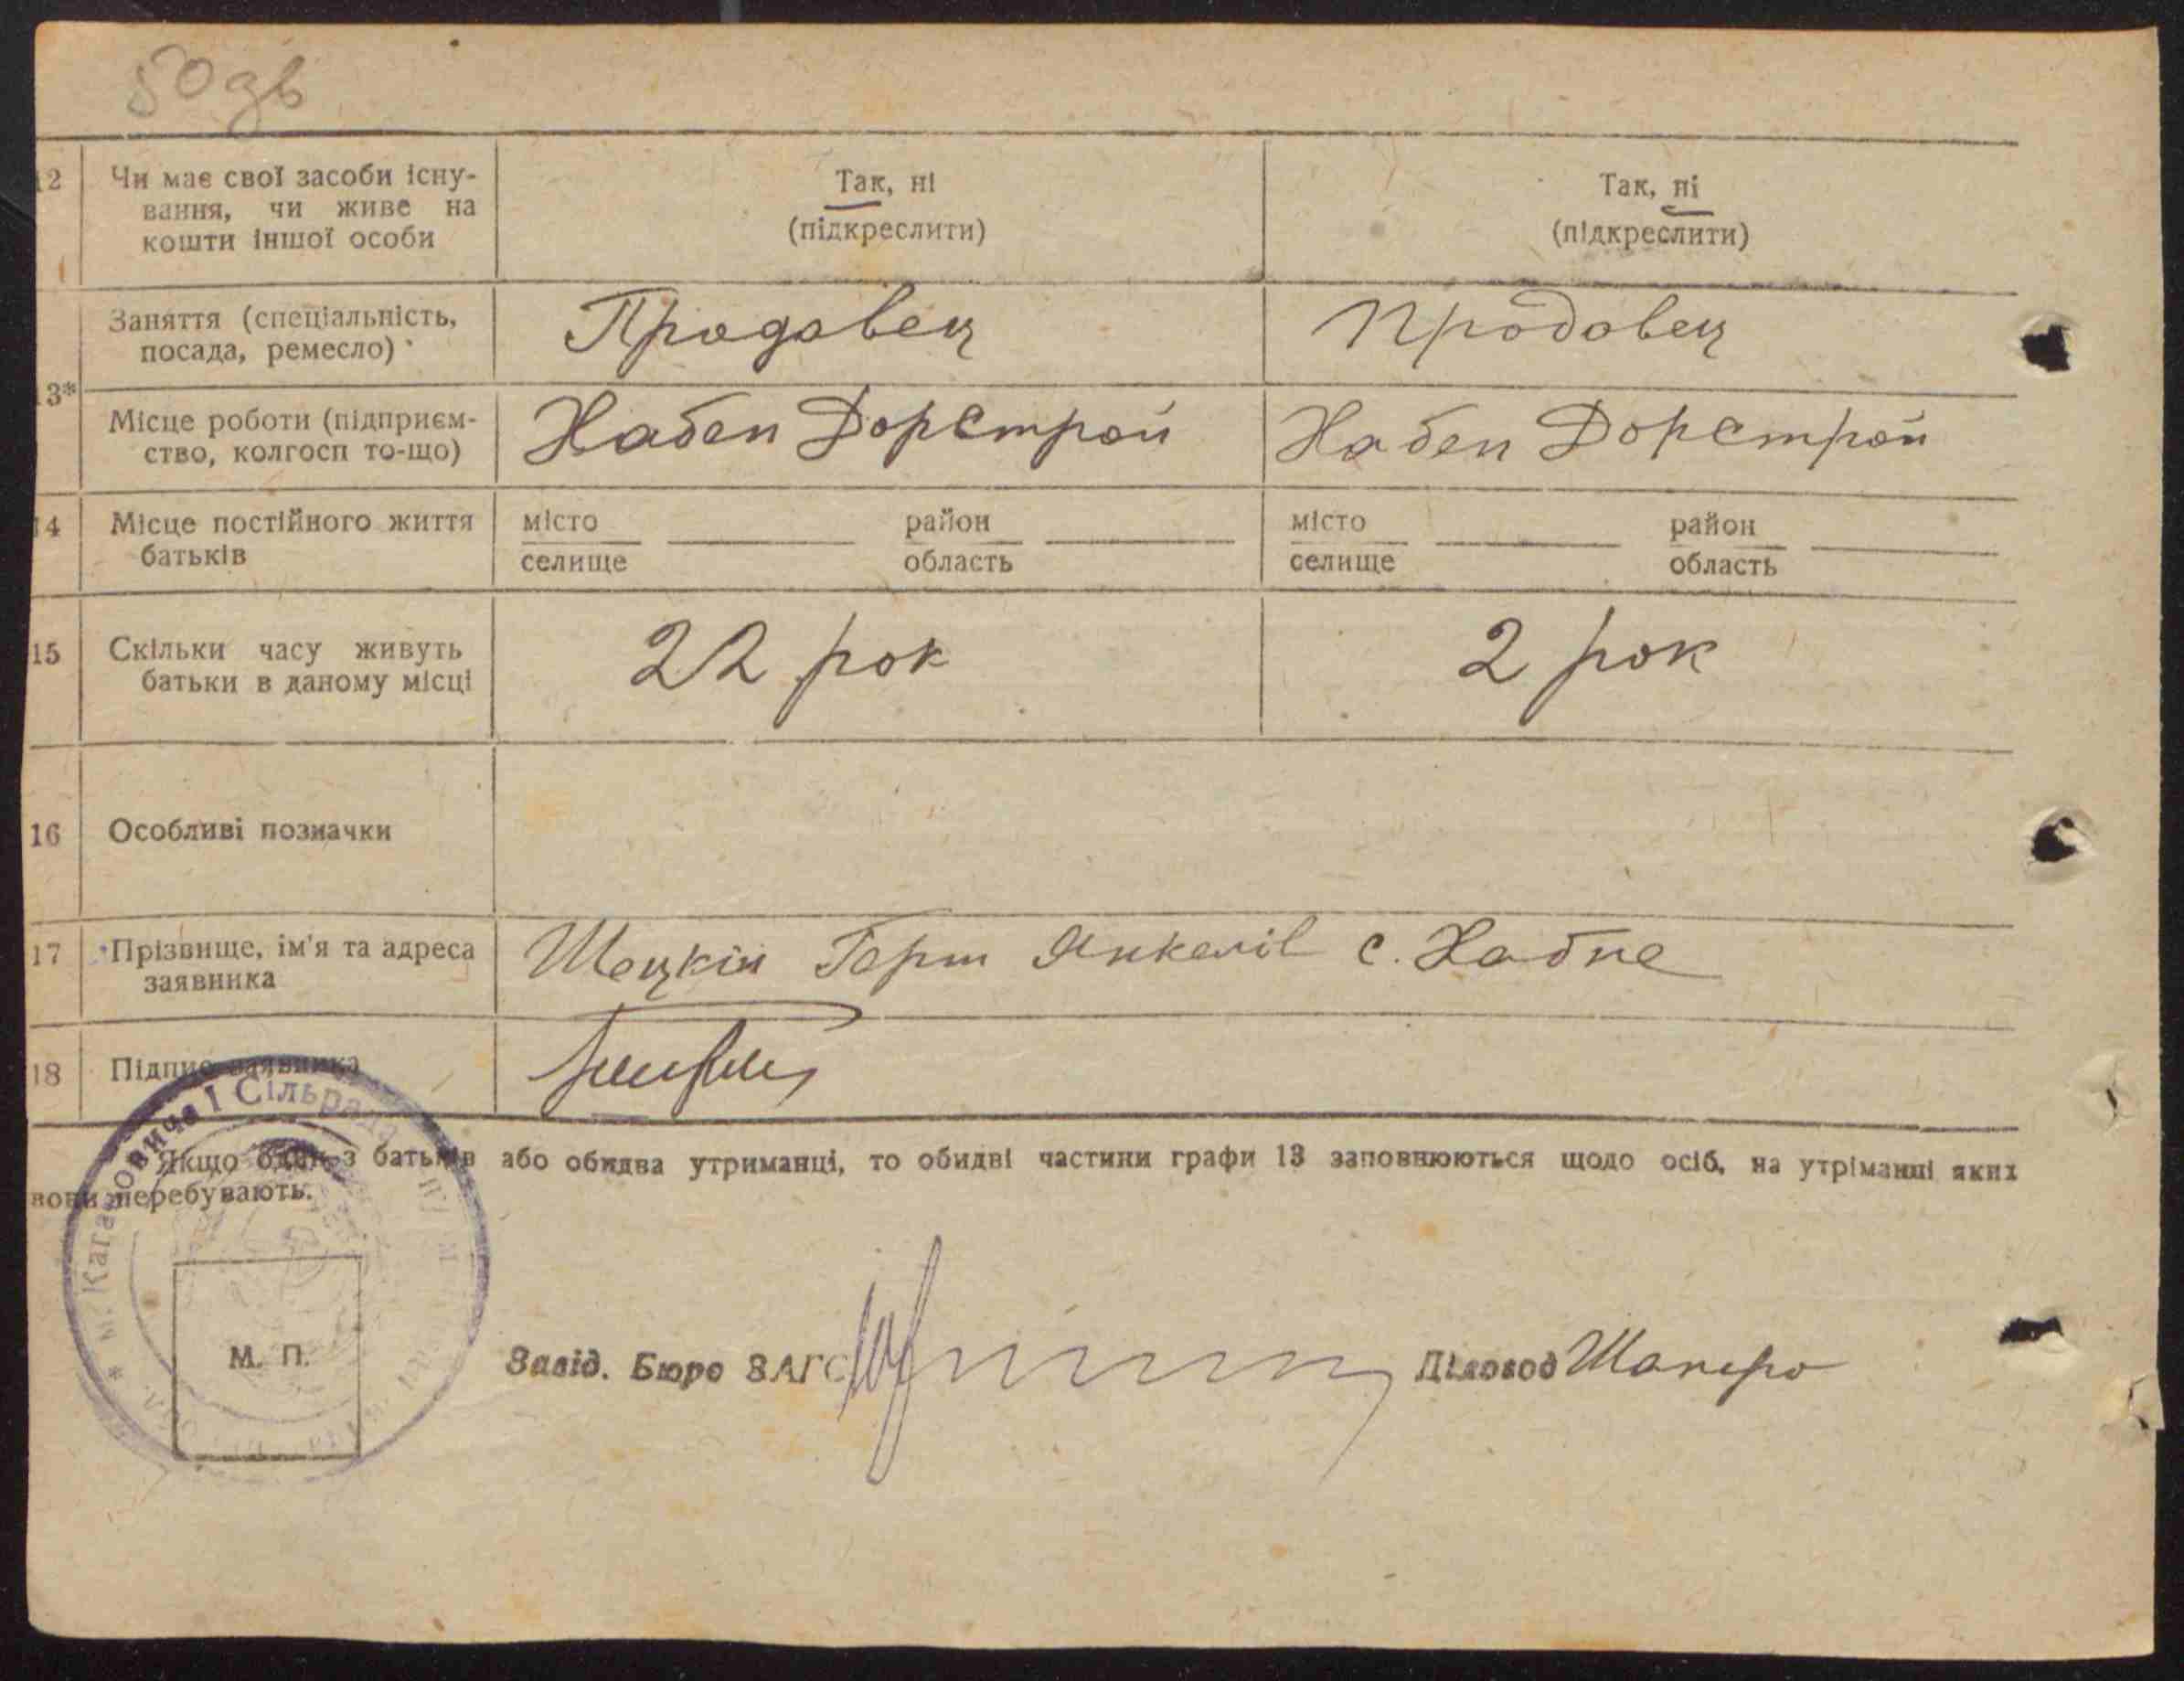 50дв
12 Чи має свої засоби існу- Так, ні Так, ні
вання, чи живе на (підкреслити) (підкреслити)
кошти іншої особи
Заняття (спеціальність, Продавец Продовец
посада, ремесло)
13*
Місце роботи (підприєм- Хабен Дорстрой Хабен Дорстрой
ство, колгосп то-що)
14 Місце постійного життя місто район місто район
батьків селище область селище область
15 Скільки часу живуть 22 рок 2 рок
батьки в даному місці
16 Особливі позначки
17 Прізвище, ім'я та адреса Шецкін Герш Янкелів с. Хабне
заявника
18 Підпис заявника
Якщо один з батьків або обидва утриманці, то обидві частини графи 13 заповнюються щодо осіб, на утріманні яких
вони перебувають.
м. Кагановича І Сільрада
М. П.
Завід. Бюро ЗАГС Діловод Шапиро